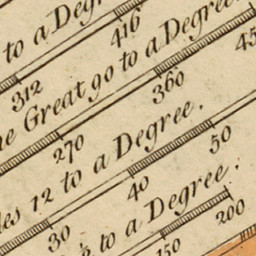 to a Degr
312 416
e Great go to a Degree
270 360 45
les 12 to a Degree.
30 40 50
to a Degree.
150 200